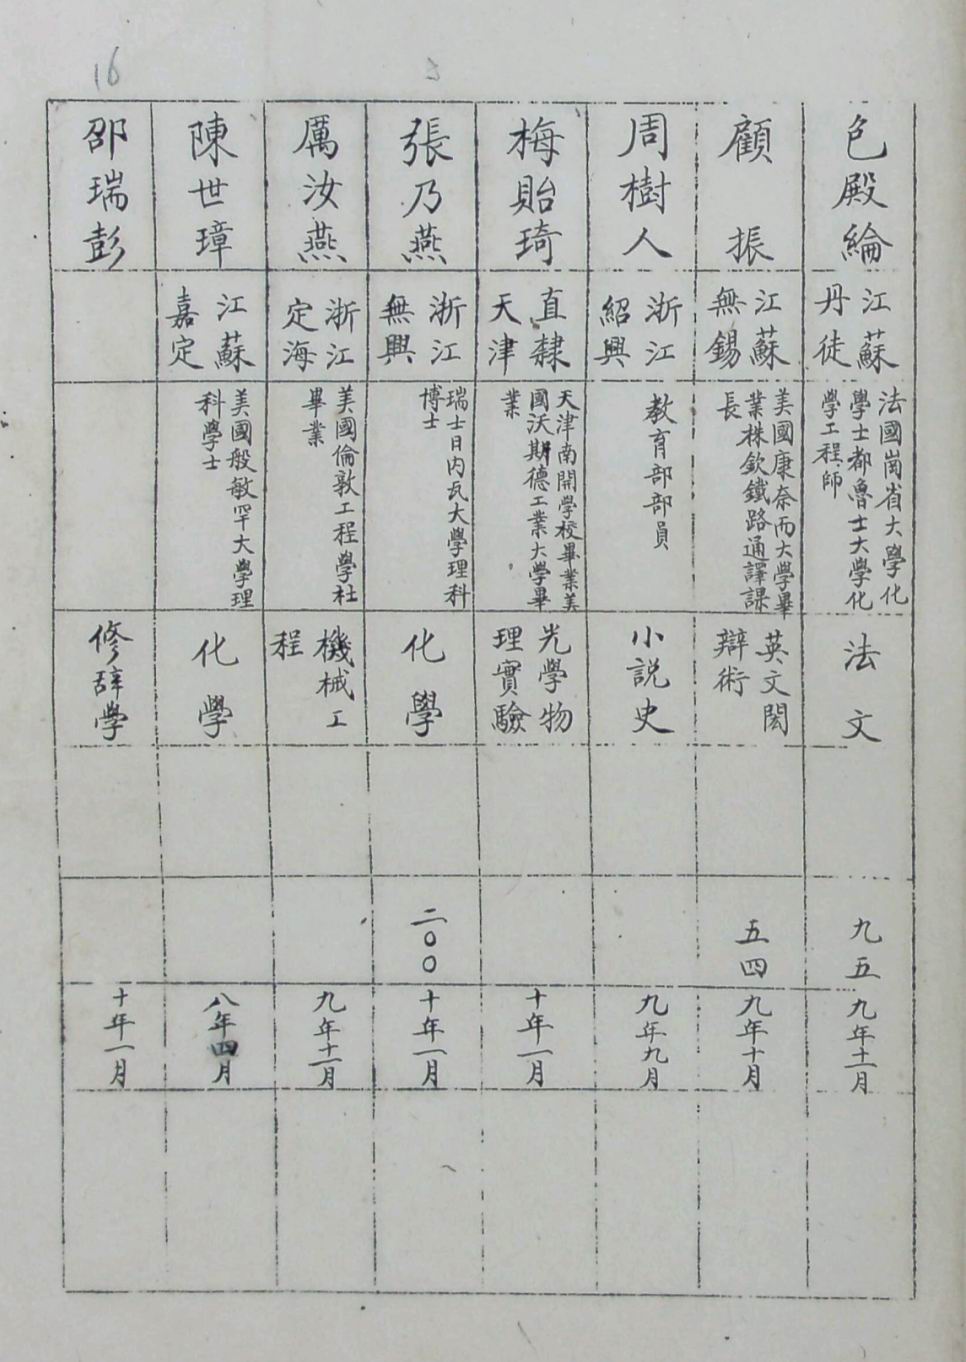 16
5
色殿綸
江蘇
丹徒
法國崗省大學化
學士都魯士大學化
學工程師
法文
九五
九年十一月
顧振
江蘇
無錫
美國康奈而大學畢
業株欽鐵路通譯課
長
英文閎
辯術
五四
九年十月
周樹人
浙江
紹興
教育部部員
小説史
九年九月
梅貽琦
直隸
天津
天津南開學校畢業美
國沃斯德工業大學畢
業
光學物
理實驗
十年一月
張乃燕
浙江
無興
瑞士日内瓦大學理科
博士
化學
二〇〇
十年一月
厲汝燕
浙江
定海
美國倫敦工程學社
畢業
機械工
程
九年十一月
陳世璋
江蘇
嘉定
美國般敏罕大學理
科學士
化學
八年四月
邵瑞彭
修辞學
十年一月